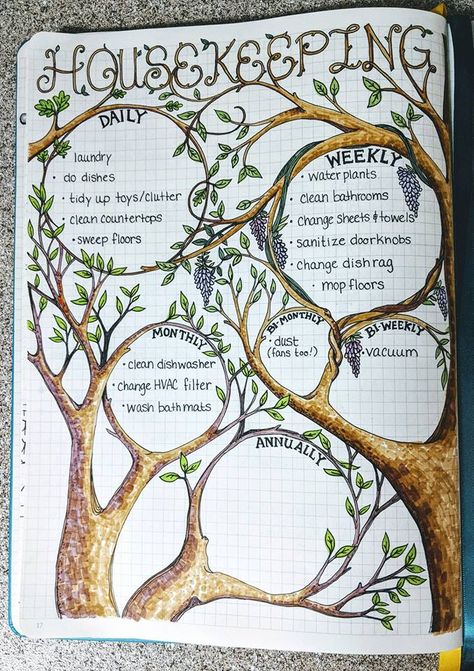 HOUSEKEEPING
DAILY
laundry
• do dishes
• tidy up toys/clutter
• clean countertops
• sweep floors
WEEKLY
• water plants
clean bathrooms
• change sheets & towels
• sanitize doorknobs
• change dishrag
• mop floors
MONTHLY
• clean dishwasher
• change HVAC filter
• wash bathmats
BI-MONTHLY
• dust
(fans too!)
BI-WEEKLY
• vacuum
ANNUALLY
17